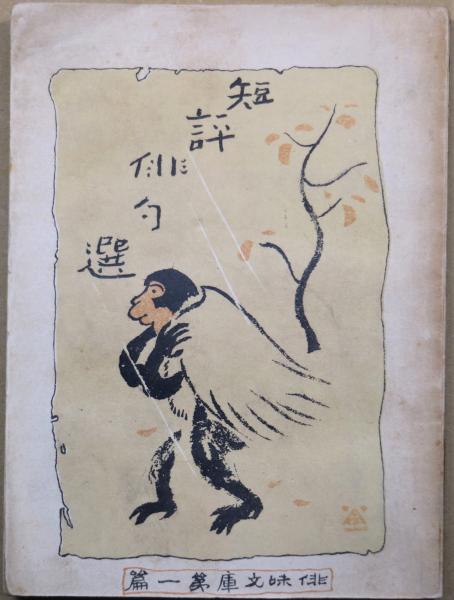 短評俳句選
俳味文庫第一篇